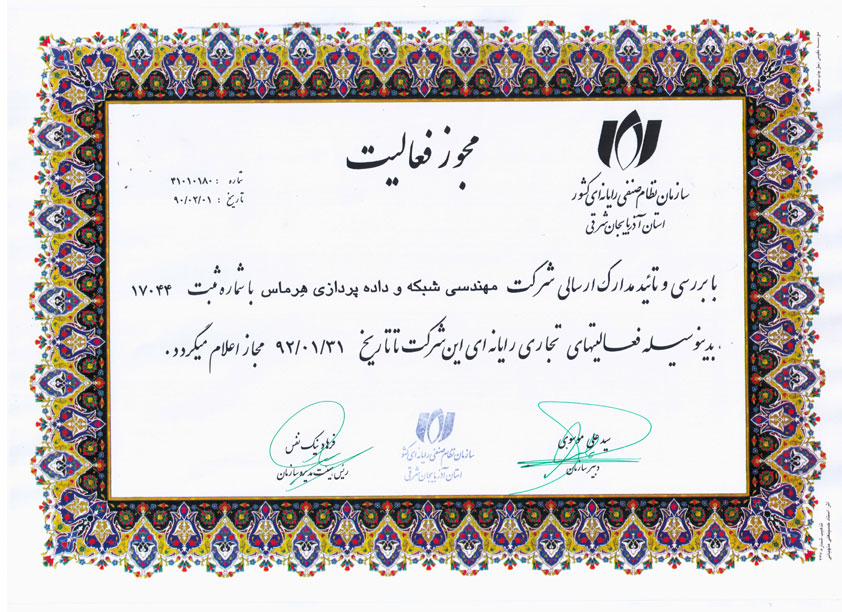 مجوز فعالیت
سازمان نظام صنفی رایانه ای کشور
استان آذربایجان شرقی
شماره : ۳۱۰۱۰۱۸۰
تاریخ : ۹۰/۰۲/۰۱
با بررسی و تائید مدارک ارسالی شرکت مهندسی شبکه و داده پردازی هِرماس با شماره ثبت ۱۷۰۴۴
، بدینوسیله فعالیتهای تجاری رایانه ای این شرکت تا تاریخ ۹۲/۰۱/۳۱ مجاز اعلام میگردد.
سید علی موسوی
دبیر سازمان
سازمان نظام صنفی رایانه ای کشور
استان آذربایجان شرقی
فرهاد نیک نفس
رئیس هیئت مدیره سازمان